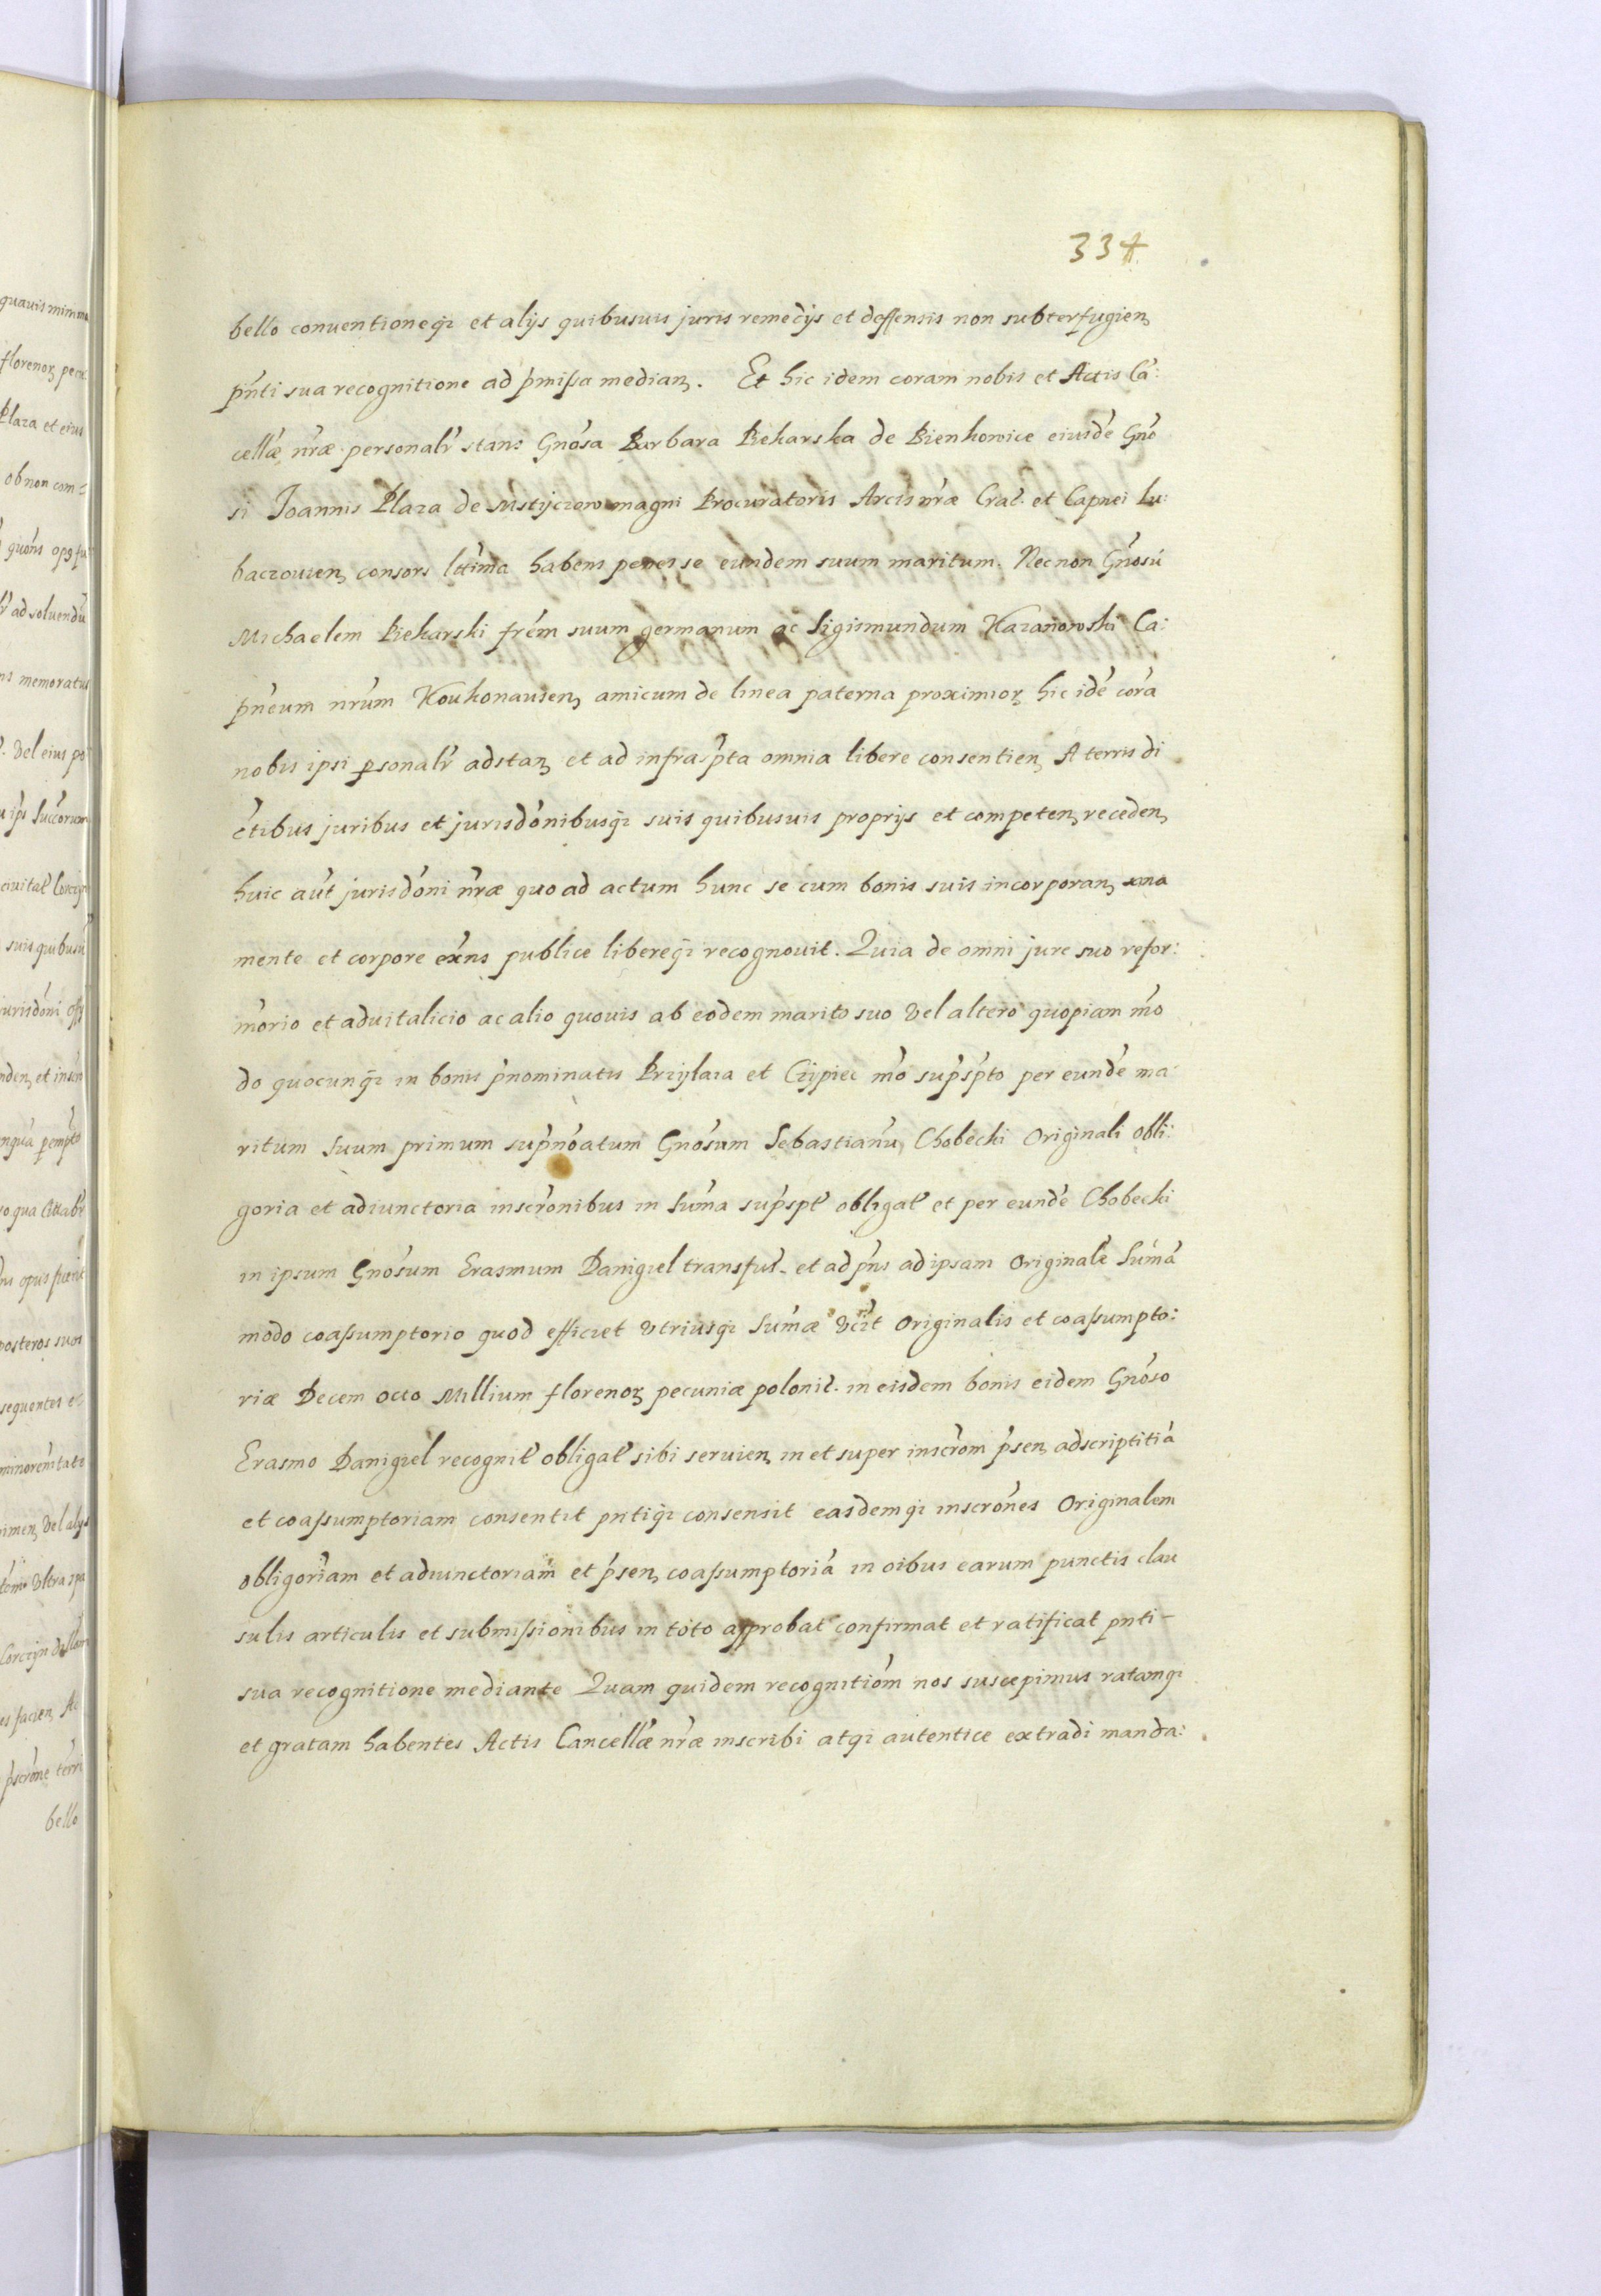 334
bello conuentioneq₃ et alijs quibusuis juris remedijs et deffensis non subterfugien
pn̄ti sua recognitione ad p̄missa median. Et hic idem coram nobis et Actis Cā:
cellæ nr̄æ personalr̄ stans Gnōsa Barbara Piekarska de Bienkowice eiusdē Gnō
si Joannis Płaza de Mstyczow magni Procuratoris Arcis nr̄æ Crac̄. et Capnei Lu:
baczouien consors lttima habens penes se eundem suum maritum. Nec non Gnōsū
Michaelem Piekarski frēm suum germanum ac Sigismundum Kazanowski Ca:
pn̄eum nr̄um Koukonausen amicum de linea paterna proximior hic idē corā
nobis ipsi psonalr̄ adstan et ad infrasp̄ta omnia libere consentien A terris di
c̄tibus juribus et jurisdōnibusq₃ suis quibusuis proprijs et competen receden
huic aūt jurisdōni nr̄æ quo ad actum hunc se cum bonis suis incorporan sana
mente et corpore exn̄s publice libereq₃ recognouit. Quia de omni jure suo refor:
mōrio et aduitalicio ac alio quouis ab eodem marito suo vel altero quopiam mō
do quocunq₃ in bonis p̄nominatis Przylaza et Czypiec mō sup̄sp̄to per eundē ma
ritum suum primum sup̄nōatum Gnōsum Sebastianū Chobecki Originali obli:
goria et adiunctoria inscrōnibus in Sum̄a sup̄spt̄ obligat̄ et per eundē Chobecki
in ipsum Gnōsum Erasmum Danigiel transfus̄. et ad pn̄s ad ipsam Originalē Sum̄ā
modo coassumptorio quod efficiet vtriusq₃ Sum̄æ vc̄zt Originalis et coassumpto:
riæ Decem octo Millium florenor pecuniæ polonic̄. in eisdem bonis eidem Gnōso
Erasmo Danigiel recognit̄ obligat̄ sibi seruien in et super inscrōm p̄sen adscriptitiā
et coassumptoriam consentit pn̄tiq₃ consensit easdemq₃ inscrōnes Originalem
obligoriam et adiunctoriam et p̄sen coassumptoriā in oībus earum punctis clau
sulis articulis et submissionibus in toto approbat confirmat et ratificat pn̄ti
sua recognitione mediante Quam quidem recognitiōm nos suscepimus ratamq₃
et gratam habentes Actis Cancellæ nr̄æ inscribi atq₃ autentice extradi manda: